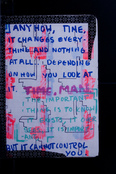 ANYHOW, TIME,
IT CHANGES EVERY-
THING AND NOTHING
AT ALL... DEPENDING
ON HOW YOU LOOK AT
IT. TIME, MAN,
THE IMPORTANT
THING IS TO
IT IS
BUT IT CANNOT CONTROL
YOU